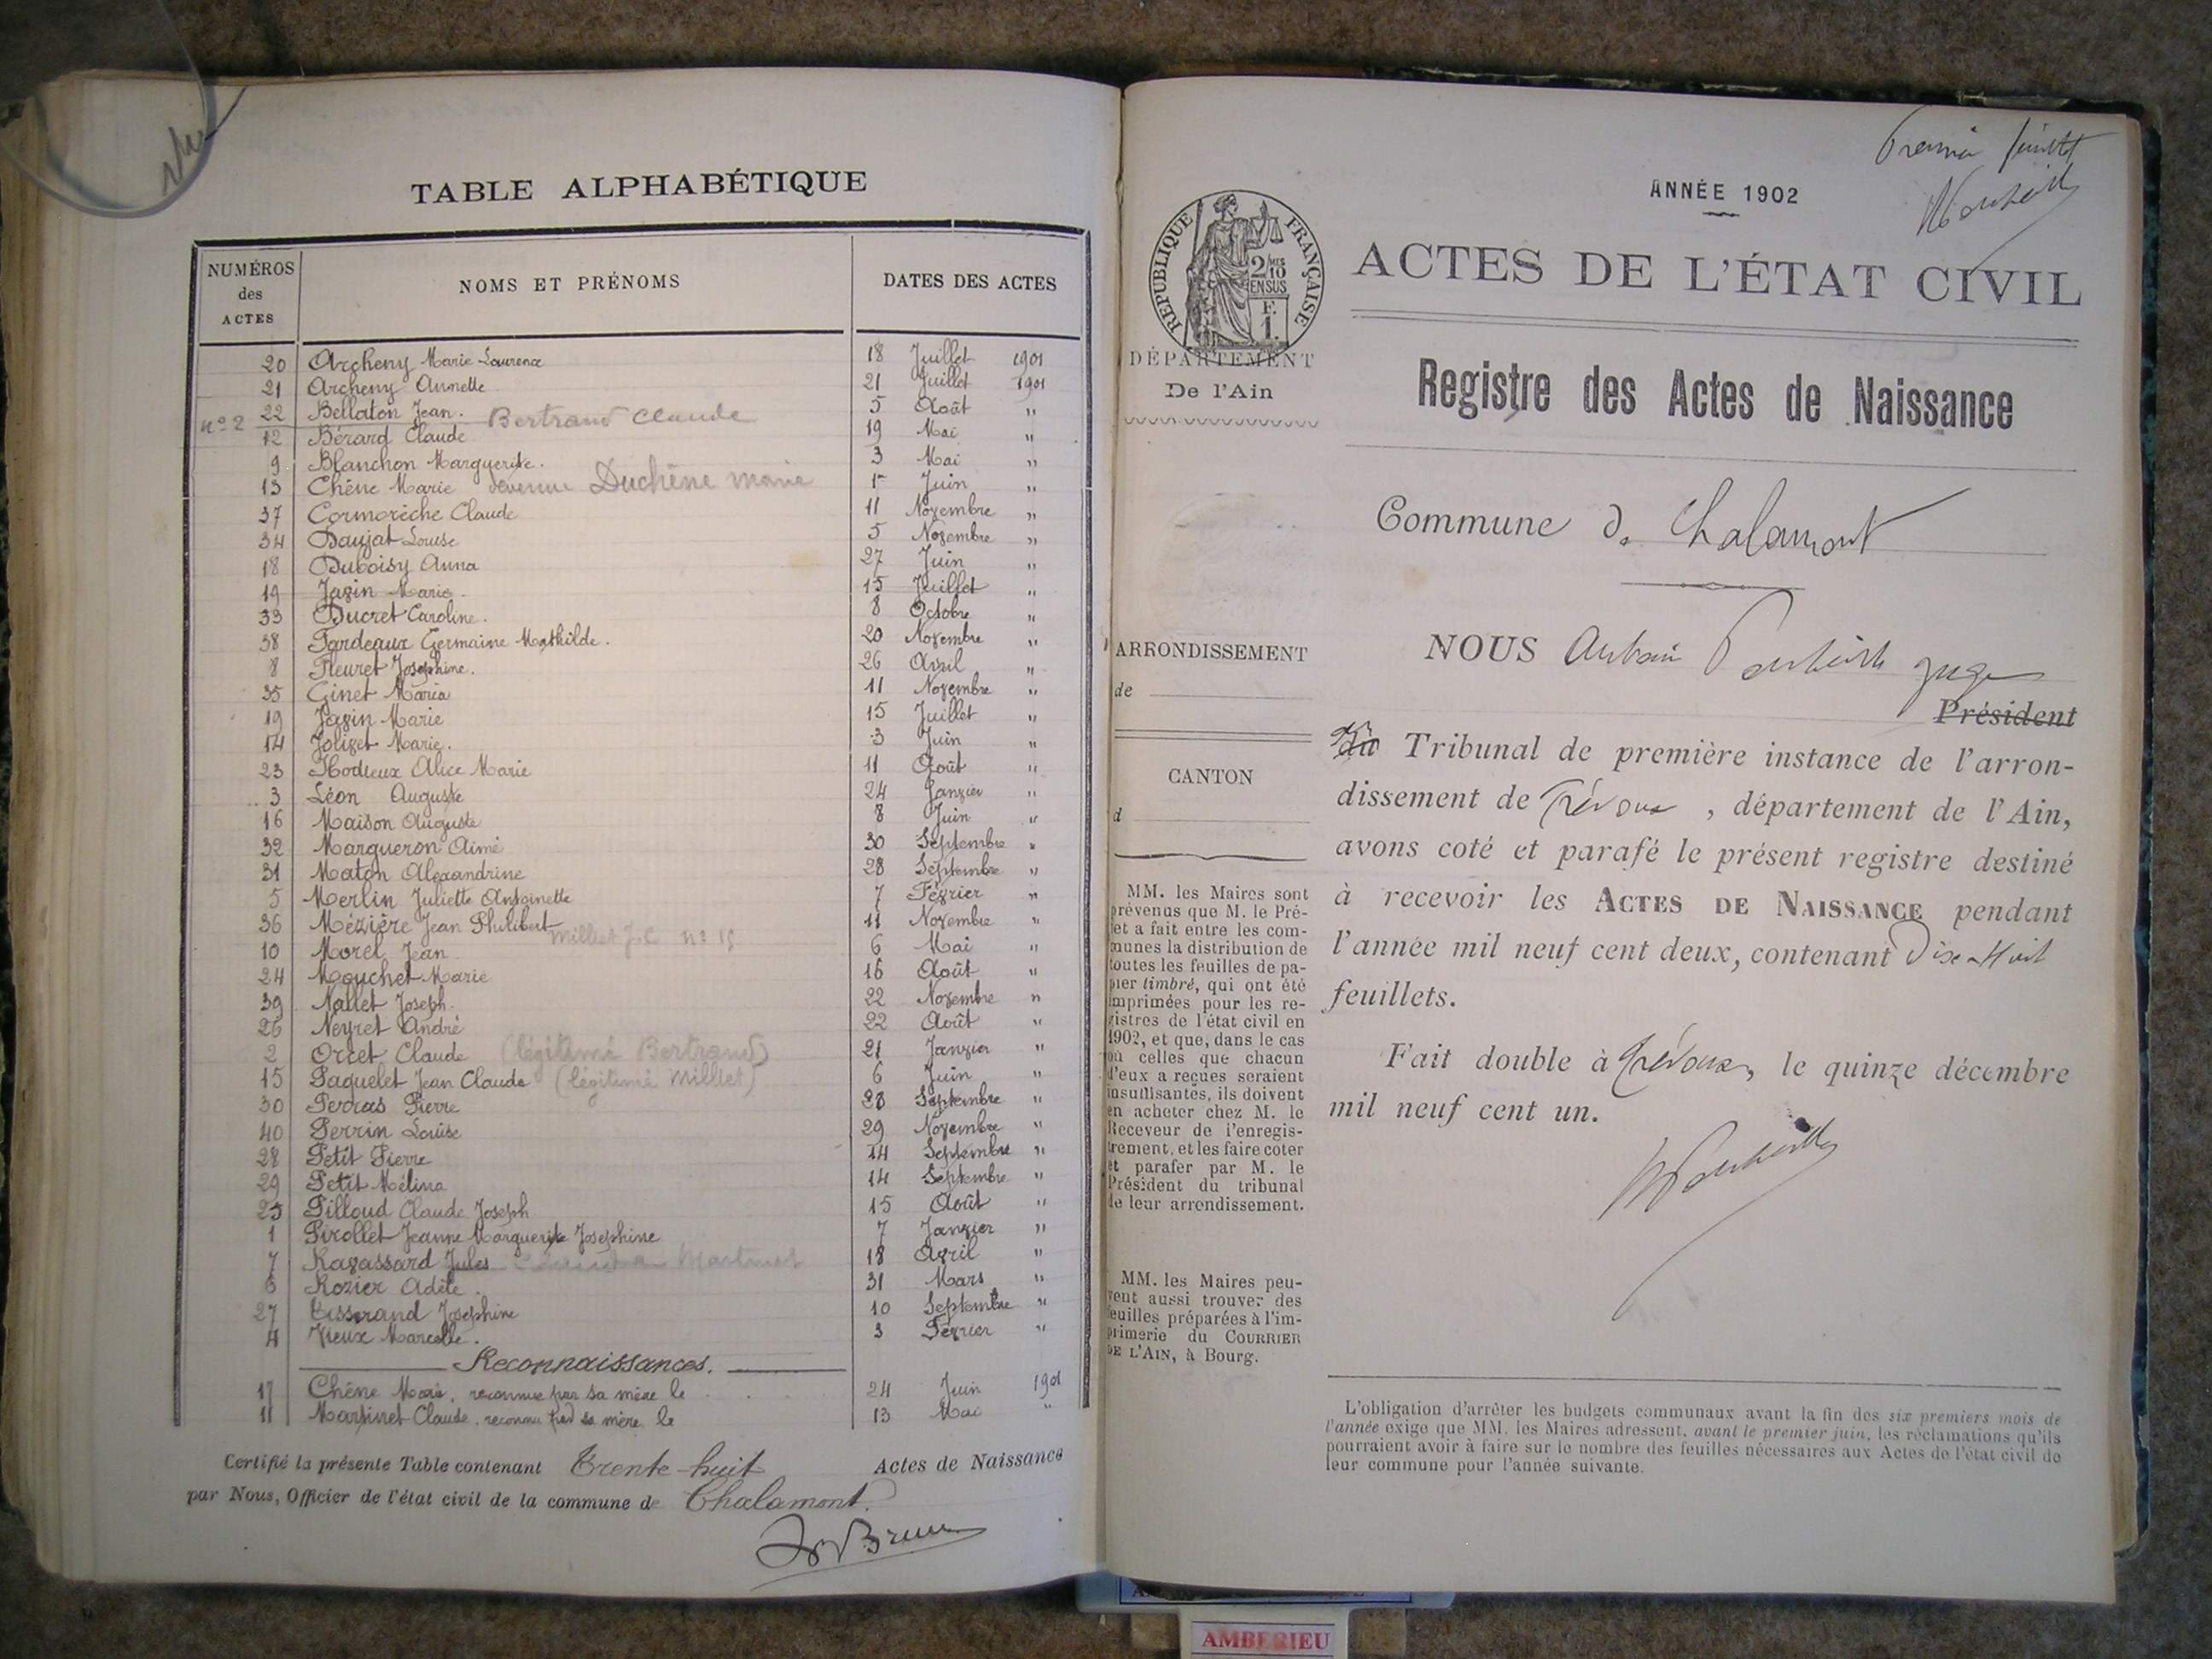 TABLE ALPHABÉTIQUE
NUMÉROS des ACTES NOMS ET PRÉNOMS DATES DES ACTES
20 Archeny Marie Laurence 18 Juillet 1901
21 Archeny Annette 21 Juillet 1901
22 Bellaton Jean. 5 Août "
n° 2 Bertrand Claude
12 Bérard Claude 19 Mai "
9 Blanchon Marguerite. 3 Mai "
13 Chêne Marie devenue Duchêne marie 1er Juin "
37 Cormorèche Claude 11 Novembre "
34 Daujat Louise 5 Novembre "
18 Duboisy Anna 27 Juin "
19 Javin Marie 15 Juillet "
33 Ducret Caroline. 8 Octobre "
38 Fardeaux Germaine Mathilde. 20 Novembre "
8 Fleuret Joséphine. 26 Avril "
35 Ginet Maria 11 Novembre "
19 Javin Marie 15 Juillet "
14 Jolivet Marie. 3 Juin "
23 Hodieux Alice Marie 11 Août "
3 Léon Auguste 24 Janvier "
16 Maison Auguste 8 Juin "
32 Margueron Aimé 30 Septembre "
31 Maton Alexandrine 28 Septembre "
5 Merlin Juliette Antoinette 7 Février "
36 Mézière Jean Philibert 11 Novembre "
Milliet J.C. n° 15
10 Morel Jean 6 Mai "
24 Mouchet Marie 16 Août "
39 Nallet Joseph. 22 Novembre "
26 Neyret André 22 Août "
2 Orcet Claude (légitimé Bertrand) 21 Janvier "
15 Paquelet Jean Claude (légitimé Milliet) 6 Juin "
30 Perras Pierre 28 Septembre "
40 Perrin Louise 29 Novembre "
28 Petit Pierre 14 Septembre "
29 Petit Mélina 14 Septembre "
25 Pilloud Claude Joseph 15 Août "
1 Pirollet Jeanne Marguerite Joséphine 7 Janvier "
7 Ravassard Jules 18 Avril "
6 Rozier Adèle. 31 Mars "
27 Tisserand Joséphine 10 Septembre "
4 Vieux Marcelle. 3 Février "
Reconnaissances.
17 Chêne Marie, reconnue par sa mère le 24 Juin 1901
11 Martinet Claude, reconnu par sa mère le 13 Mai "
Certifié la présente Table contenant Trente-huit Actes de Naissance
par Nous, Officier de l'état civil de la commune de Chalamont.
Premier feuillet
ANNÉE 1902
RÉPUBLIQUE FRANÇAISE
2/10mes EN SUS
F. 1.
ACTES DE L'ÉTAT CIVIL
DÉPARTEMENT
De l'Ain
Registre des Actes de Naissance
Commune de Chalamont
ARRONDISSEMENT
de
CANTON
d
MM. les Maires sont
prévenus que M. le Pré-
fet a fait entre les com-
munes la distribution de
toutes les feuilles de pa-
pier timbré, qui ont été
imprimées pour les re-
gistres de l'état civil en
1902, et que, dans le cas
où celles que chacun
d'eux a reçues seraient
insuffisantes, ils doivent
en acheter chez M. le
Receveur de l'enregis-
trement, et les faire coter
et parafer par M. le
Président du tribunal
de leur arrondissement.
MM. les Maires peu-
vent aussi trouver des
feuilles préparées à l'im-
primerie du COURRIER
DE L'AIN, à Bourg.
NOUS juge
Président
du Tribunal de première instance de l'arron-
dissement de Trévoux, département de l'Ain,
avons coté et parafé le présent registre destiné
à recevoir les ACTES DE NAISSANCE pendant
l'année mil neuf cent deux, contenant Dix-Huit
feuillets.
Fait double à Trévoux, le quinze décembre
mil neuf cent un.
L'obligation d'arrêter les budgets communaux avant la fin des six premiers mois de
l'année exige que MM. les Maires adressent, avant le premier juin, les réclamations qu'ils
pourraient avoir à faire sur le nombre des feuilles nécessaires aux Actes de l'état civil de
leur commune pour l'année suivante.
AMBERIEU